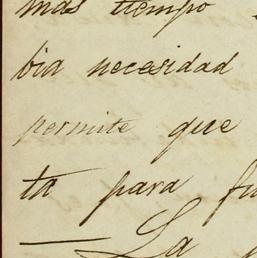 mas tiempo
bia necesidad
permite que
ta para fu
— La